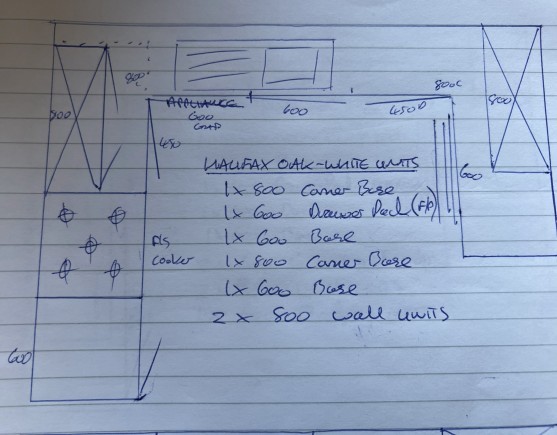 800
C
800C
800
APPLIANCE
600
600
450D
800
450
600
HALIFAX OAK-WHITE UNITS
1 x 800 Corner Base
1 x 600 Drawer Pack (F/P)
1 x 600 Base
1 x 800 Corner Base
1 x 600 Base
2 x 800 wall units
F/S
Cooker
600